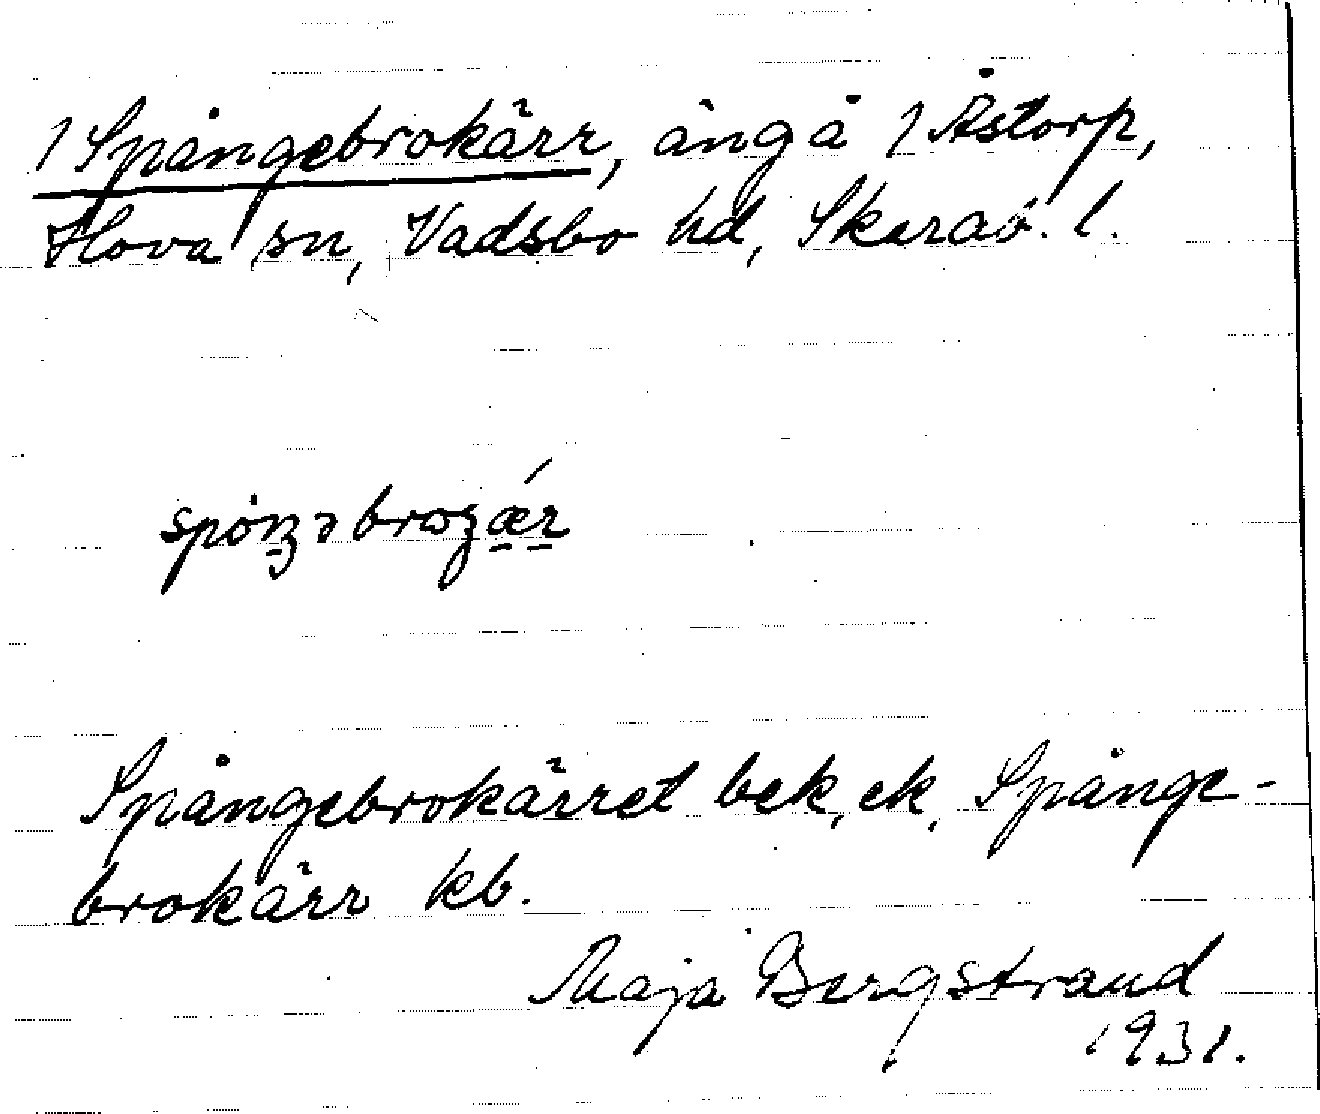 1 Spångebrokärr, äng å 1 Åstorp,
Hova sn, Vadsbo hd, Skarab. l.
Spångebrokärret bek, ek, Spånge-
brokärr kb.
Maja Bergstrand
1931.